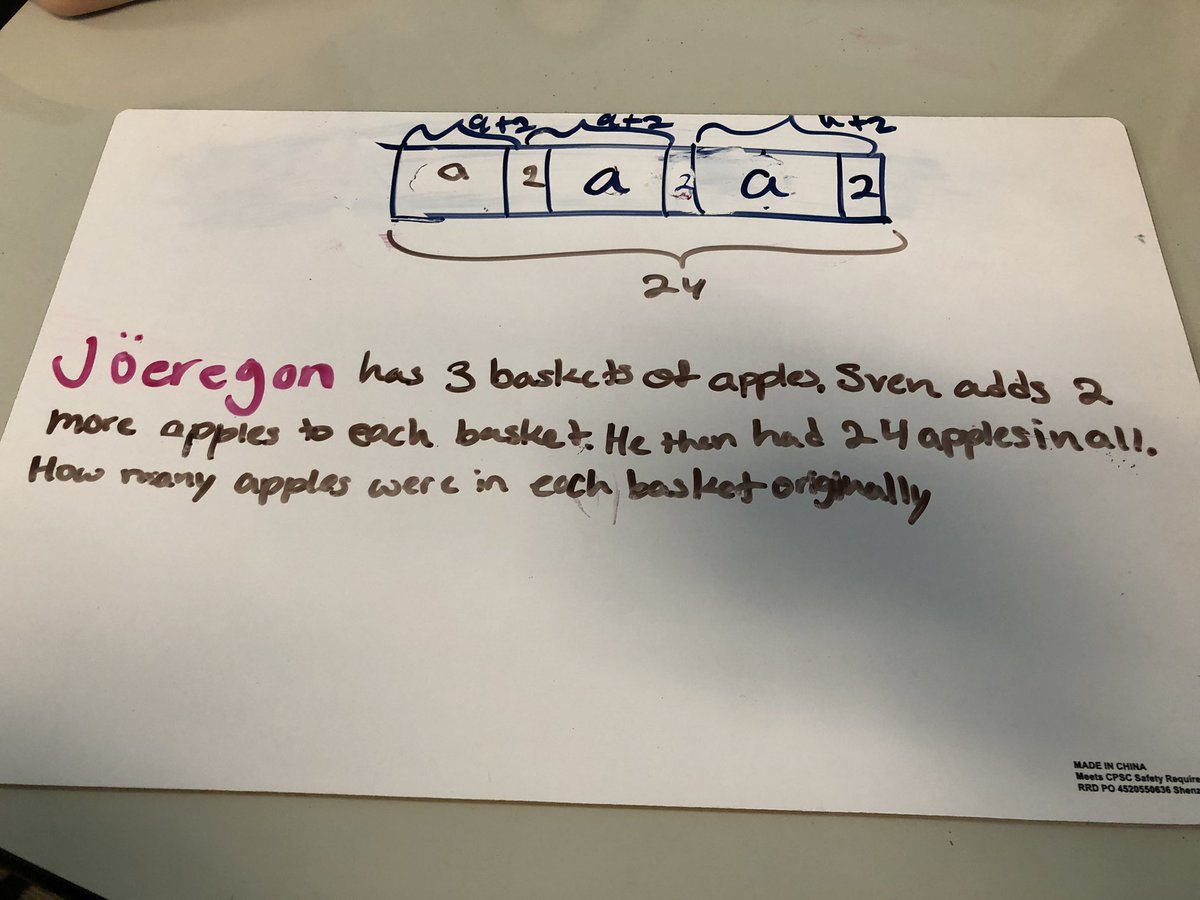 a+2 a+2 a+2
a 2 a 2 a 2
24
Jöeregon has 3 baskets of apples. Sven adds 2
more apples to each basket. He then had 24 apples in all.
How many apples were in each basket originally
MADE IN CHINA
Meets CPSC Safety Require
RRD PO 4520550636 Shenz